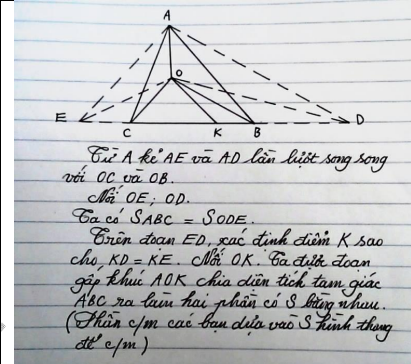 A
O
E C K B D
Từ A kẻ AE và AD lần lượt song song
với OC và OB.
Nối OE; OD.
Ta có SABC = SODE.
Trên đoạn ED, xác định điểm K sao
cho KD = KE. Nối OK. Ta được đoạn
gấp khúc AOK chia diện tích tam giác
ABC ra làm hai phần có S bằng nhau.
(Phần c/m các bạn dựa vào S hình thang
để c/m)